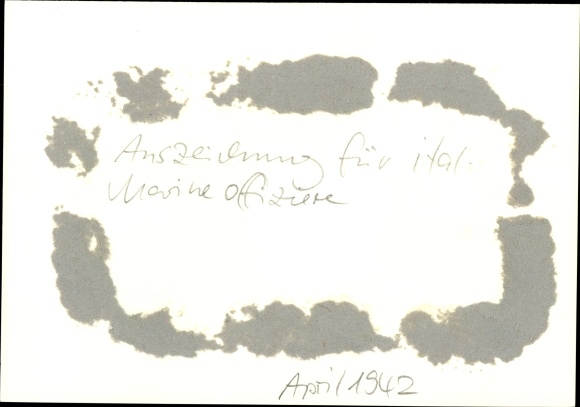 Auszeichnung für ital.
Marineoffiziere
April 1942